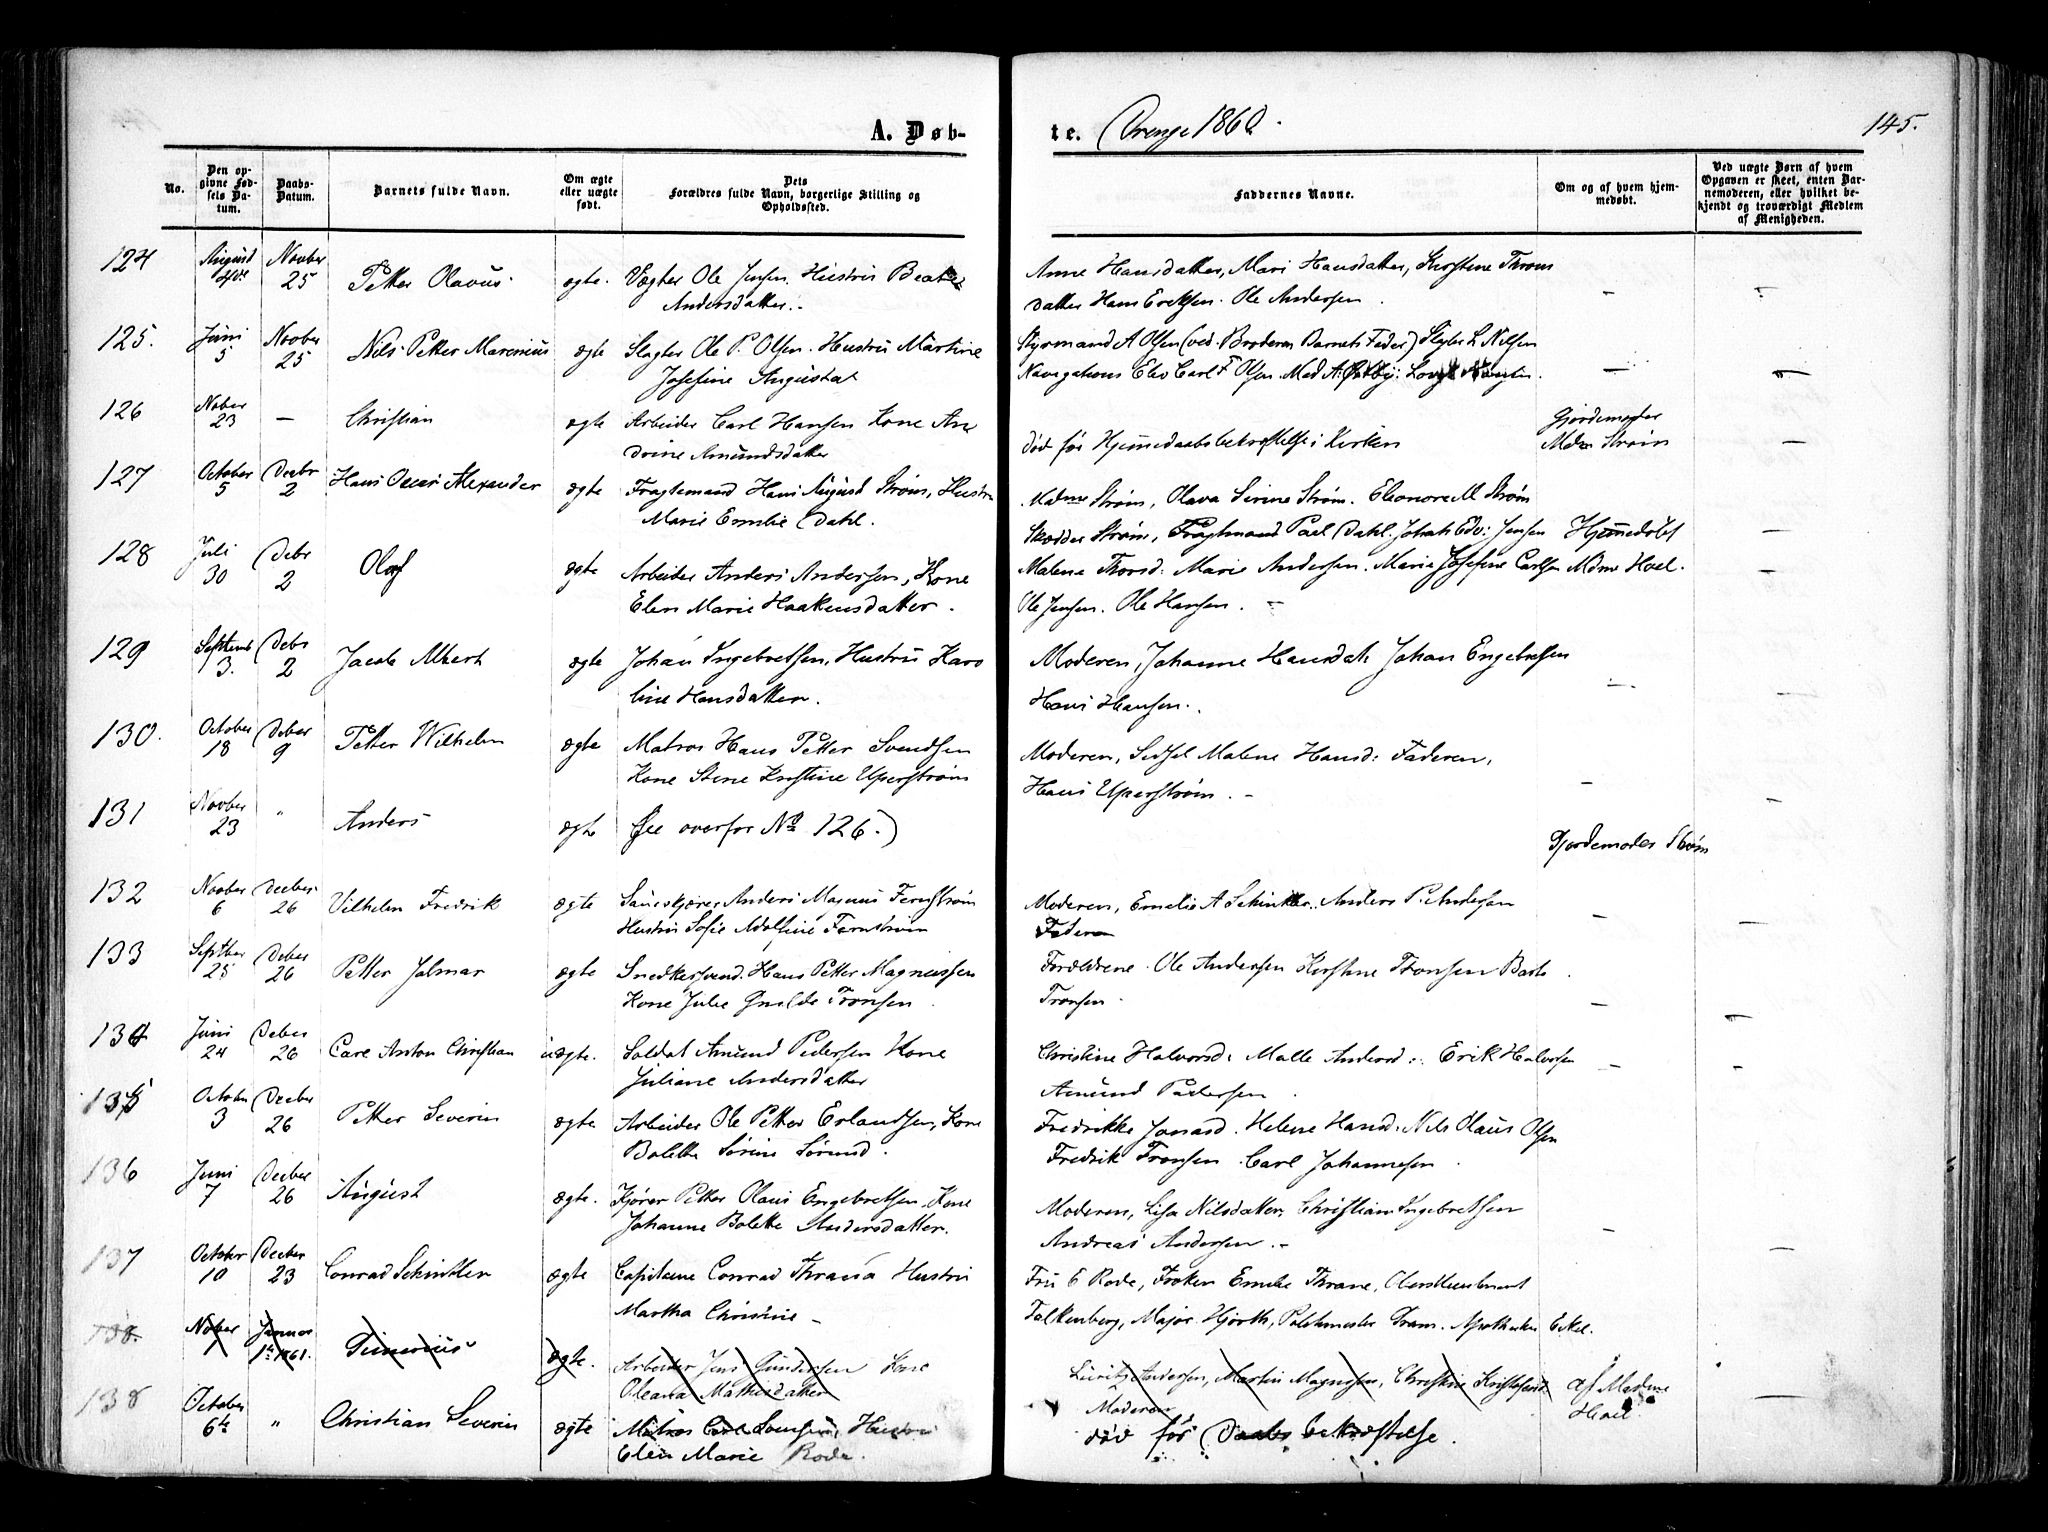 A. Døb-
te. Drenge 1860.
145.
No.
Den op-
givne Fød-
sels Da-
tum.
Daabs-
Datum.
Barnets fulde Navn.
Om ægte
eller uægte
født.
Dets
Forældres fulde Navn, borgerlige Stilling og
Opholdssted.
Faddernes Navne.
Om og af hvem hjem-
medøbt.
Ved uægte Børn af hvem
Opgaven er skeet, enten Bar-
nemoderen, eller hvilket be-
kjendt og troværdigt Medlem
af Menigheden.
124 August Novber Petter Olavus ægte. Vægter Ole Jensen. Hustru Beate Anne Hansdatter, Mari Hansdatter, Kirstine Throns
25 Andersdatter. datter Hans Eriksen. Ole Andersen. — —
125. Juni Novber Nils Petter Marenius ægte Slagter Ole P. Olsen. Hustru Martine Styrmand A Olsen (ved Broderen Barnets Fader) L Nilsen
5 25 Josefine Augusta Navigations Elev Carl F Olsen Mad A. — —
126 Nober 23 — Christian ægte Arbeider Carl Hansen Kone An Gjordemoder
drine Amundsdatter død før Hjemmedaabsbekræftelse i Kirken Mdm Strøm —
127 October Decbr Hans Oscar Alexander ægte Fragtemand Hans August Strøm, Hustru Madme Strøm, Olava Sirine Strøm. Elenore M Strøm
5 2 Marie Emilie Dahl. Skrædder Strøm, Fragtmand Paul Dahl. Johan Edv: Jensen Hjemmedøbt —
128 Juli Debr Olaf ægte Arbeider Anders Andersen, Kone Malena Thorsd: Marie Andersen. Maria Josefine Carlsen Mdme Hoel. —
30 2 Elen Marie Haakensdatter. Ole Jensen. Ole Hansen. —
129 Septemb Debr Jacob Albert ægte Johan Ingebretsen, Hustru Karo Moderen, Johanne Hansdat: Johan Engebretsen
3. 2 line Hansdatter. Hans Hansen. — —
130. October Deber Petter Wilhelm ægte Matros Hans Petter Svendsen Moderen, Sidsel Malene Hansd: Faderen,
18 9 Kone Stine Kristine Uperstrøm Hans Uperstrøm. — — —
131 Novber 23 " Anders ægte (see overfor No 126.) Gjordemoder Strøm
132 Novber Decber Vilhelm Fredrik ægte Anders Magnus Fernstrøm Moderen, Emelie A Schinkler. Anders P. Andersen
6 26 Hustru Sofie Adolfine Fernstrøm Faderen — —
133 Septber Deber Petter Jalmar ægte Snedkersvend. Hans Petter Magnussen Forældrene. Ole Andersen Kirstine Tronsen
25 26 Kone Julie Tronsen Tronsen. — —
134 Juni Deber Carl Anton Christian uægte. Soldat Amund Pedersen Kone Christine Halvorsd: Malle Andersd: Erik Halvorsen
24 26 Juliane Andersdatter Amund Pedersen. — —
135 October Decber Petter Severin ægte Arbeider Ole Petter Erlandsen, Kone Fredrikke Jonasd. Helene Hansd. Nils Olaus Olsen
3 26 Bolette Sørine Sørensd. Fredrik Tronsen. Carl Johannesen.
136 Juni Decber August ægte. Kjører Petter Olaus Engebretsen Kone Moderen, Lisa Nilsdatter, Christian Ingebretsen
7 26 Johanne Bolette Andersdatter. Andreas Andersen. — — —
137 October Decber Conrad Schinkler ægte Capitaine Conrad Thrana Hustru Fru E Rode, Frøken Emilie Thrane, Oberstleutnant
10 23 Martha Christine — Falkenberg, Major Hjorth, Politimester Dram. Apotheker Eckel.
138. Nober 1 Januar 1te 1861. ægte. Arbeider Jens Gundersen Kone Andersen, Martin Magnussen, Christine Kristofersd.
Oleana Mathisdatter Moderen
138 October 6te " Christian Severin ægte Matros Carl Hustru død før Daabs bekræftelse. af Madme Hoel. —
Elen Marie Rode.